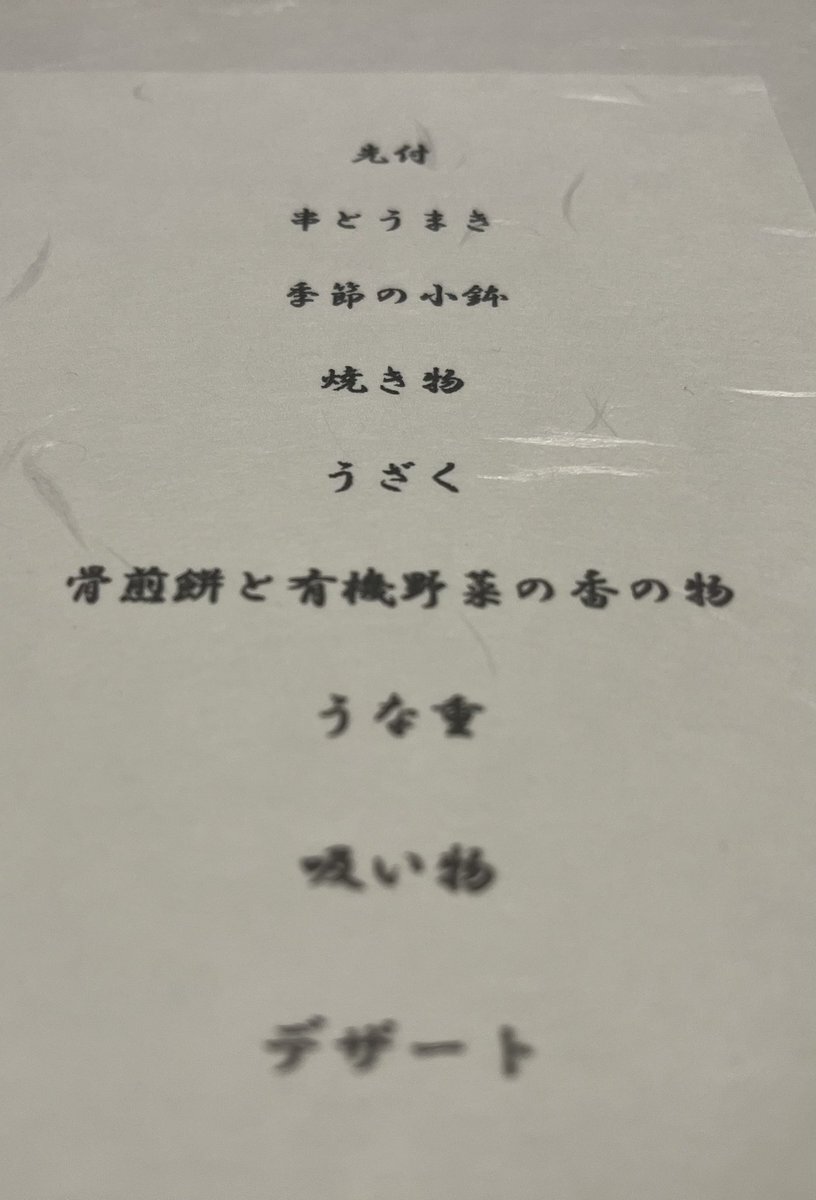 先付
串とうまき
季節の小鉢
焼き物
うざく
骨煎餅と有機野菜の香の物
うな重
吸い物
デザート